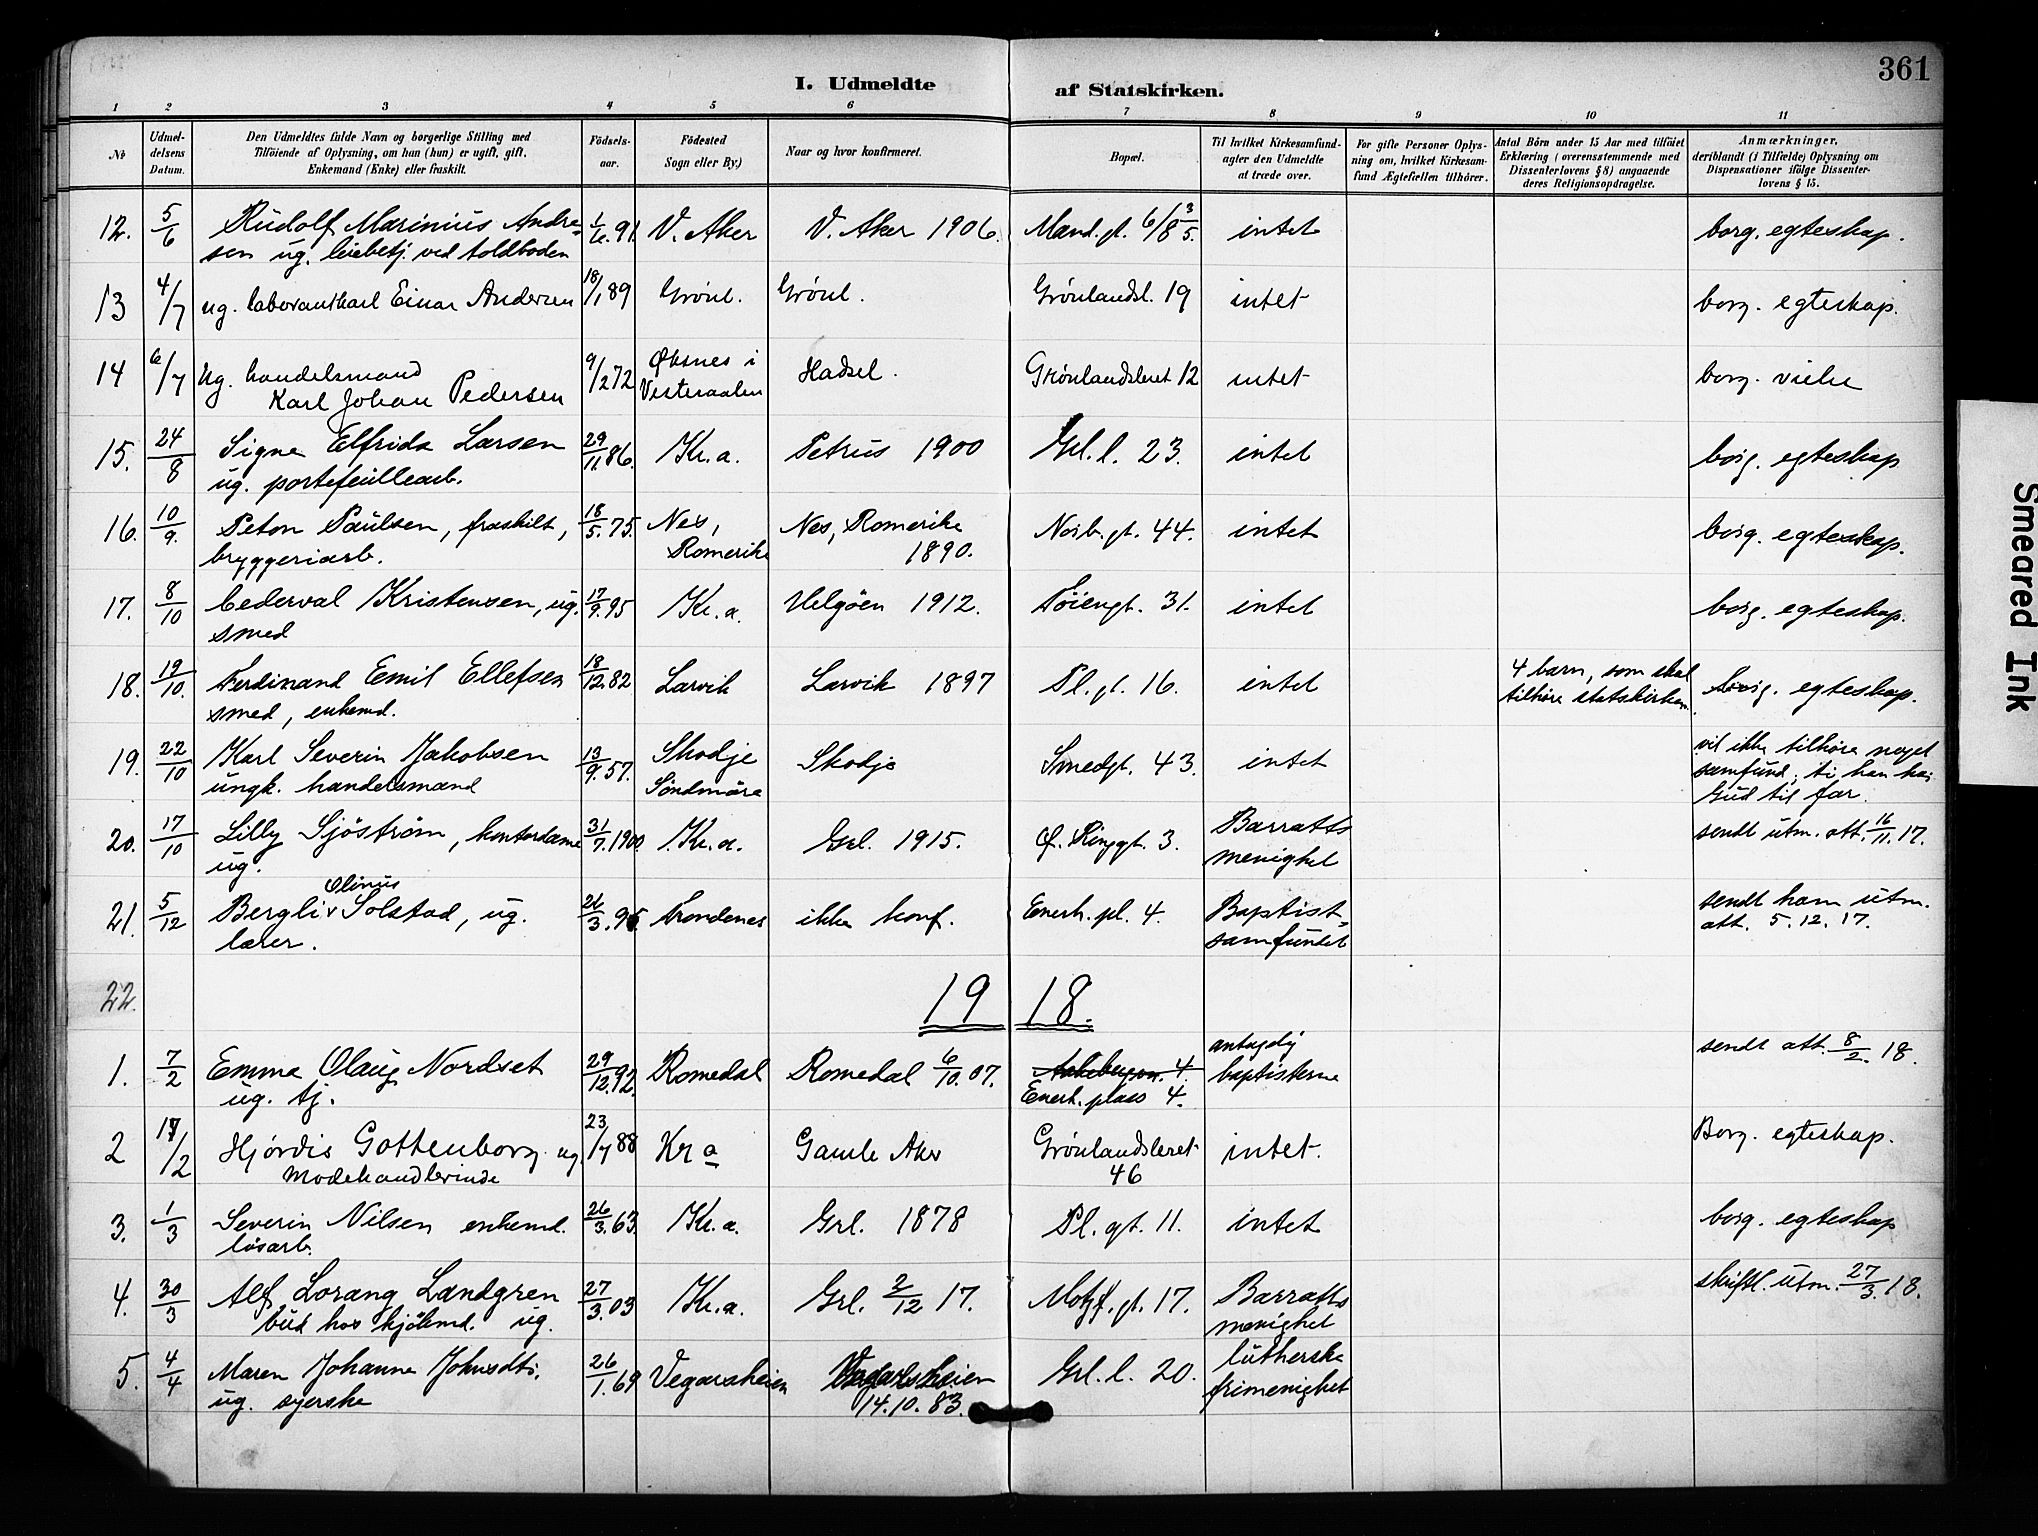 361
I. Udmeldte af Statskirken.
1 2 3 4 5 6 7 8 9 10 11
No
Udmeldelsens Datum.
Den Udmeldtes fulde Navn og borgerlige Stilling med
Tilföiende af Oplysning, om han (hun) er ugift, gift,
Enkemand (Enke) eller fraskilt.
Födselsaar.
Födested
Sogn eller By.)
Naar og hvor konfirmeret.
Bopæl.
Til hvilket Kirkesamfund
agter den Udmeldte
at træde over.
For gifte Personer Oplys-
ning om, hvilket Kirkesam-
fund Ægtefællen tilhörer.
Antal Börn under 15 Aar med tilföiet
Erklæring (overensstemmende med
Dissenterlovens § 8) angaaende
deres Religionsopdragelse.
Anmærkninger,
deriblandt (i Tilfælde) Oplysning om
Dispensationer ifölge Dissenter-
lovens § 15.
12. 5/6 Rudolf Marinius Andre- 1/6.91 V. Aker V. Aker 1906. Mand. gt. 6/8 3/5. intet borg. egteskap.
sen ug. ved toldboden
13 4/7 ug. laborantkarl Einar Andersen 18/1 89 Grönl. Grönl. Grönlandsl. 19 intet borg. egteskap.
14 6/7 Ug. handelsmand 9/2 72 Øksnes i Hadsel. Grönlandsleret 12 intet borg. vielse
Karl Johan Pedersen Vesteraalen
15. 24/8 Signe Elfrida Larsen 29/11 86. Kr.a. Petrus 1900 Grl. l. 23. intet borg. egteskap
ug. portefeuillearb.
16. 10/9. Peton Paulsen, fraskilt, 18/5.75. Nes, Nes, Romerike Norb. gt. 44. intet borg. egteskap.
bryggeriarb. Romerike 1890.
17. 8/10 Cederval Kristensen, ug. 17/9.95 Kr.a. Helgöen 1912. Töiengt. 31. intet borg. egteskap.
smed
18. 19/10. Ferdinand Emil Ellefsen 18/12.82 Larvik Larvik 1897 Pl. gt. 16. intet 4 barn, som skal borg. egteskap.
smed, enkemd. tilhöre statskirken.
19. 22/10 Karl Severin Jakobsen 13/9.57. Skodje Skodje Smedgt. 43. intet vil ikke tilhöre noget
ungk. handelsmand Söndmöre samfund; ti han har
Gud til far.
20. 17/10 Lilly Sjöström, kontordame 31/7.1900. Kr.a. Grl. 1915. Ø. Ringgt. 3. Barratts sendt utm. att. 16/11.17.
ug. menighet
21. 5/12 Bergliv Olinus Solstad, ug. 26/3.95 Trondenes ikke konf. Enerh. pl. 4. Baptist- sendt ham utm.
lærer. samfundet att. 5.12.17.
22.
1918.
1. 7/2 Emma Olaug Nordset 29/12.92. Romedal Romedal 6/10.07. Enerh. plass 4. antagelig baptisterne sendt att. 8/2. 18.
ug. tj.
2 17/2 Hjördis Gottenborg ug. 23/7 88 Kra Gamle Aker Grönlandsleret intet. Borg. egteskap.
Modehandlerinde 46
3. 1/3 Severin Nilsen enkemd. 26/3.63. Kr.a. Grl. 1878 Pl. gt. 11. intet borg. egteskap
lösarb.
4. 30/3 Alf Lorang Landgren 27/3.03 Kr.a. Grl. 2/12 17. Motzf. gt. 17. Barratts skriftl. utm. 27/3.18.
bud hos kjöbmd. ug. menighet
5. 4/4 Maren Johanne 26/1.69 Vegarsheien Vegarsheien Grl. l. 20. lutherske
ug. syerske 14.10.83. frimenighet
Smeared Ink